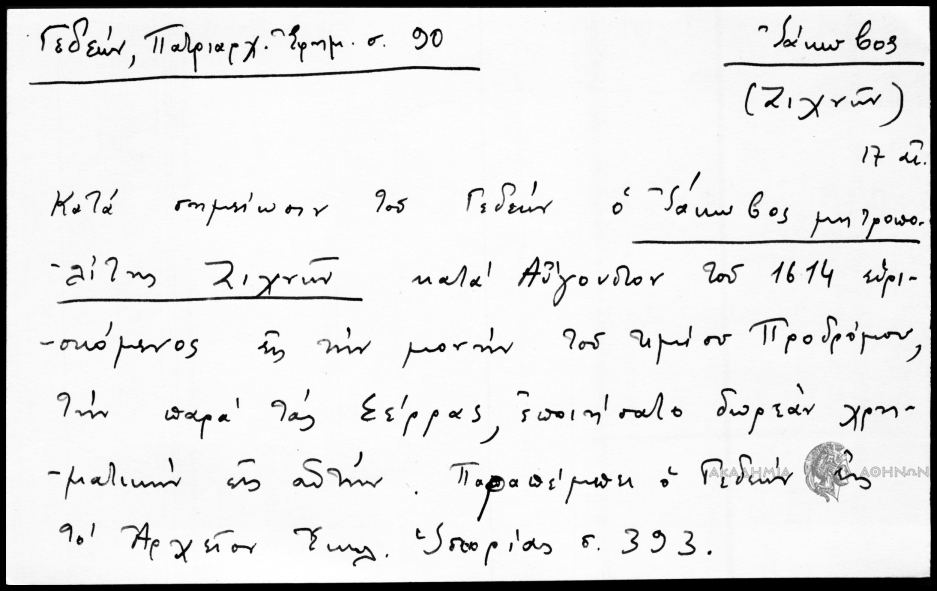 Γεδεών, Πατριαρχ. Ἐφημ. σ. 90
Ἰάκωβος
(Ζιχνῶν)
17 αἰ.
Κατά σημείωσιν τοῦ Γεδεών ὁ Ἰάκωβος μητροπο-
-λίτης Ζιχνῶν κατά Αὔγουστον τοῦ 1614 εὑρι-
-σκόμενος εἰς τήν μονήν τοῦ τιμίου Προδρόμου,
τήν παρά τάς Σέρρας, ἐποιήσατο δωρεάν χρη-
-ματικήν εἰς αὐτήν. Παραπέμπει ὁ Γεδεών εἰς
τό Ἀρχεῖον Ἐκκλ. Ἱστορίας σ. 393.
ΑΚΑΔΗΜΙΑ ΑΘΗΝΩΝ